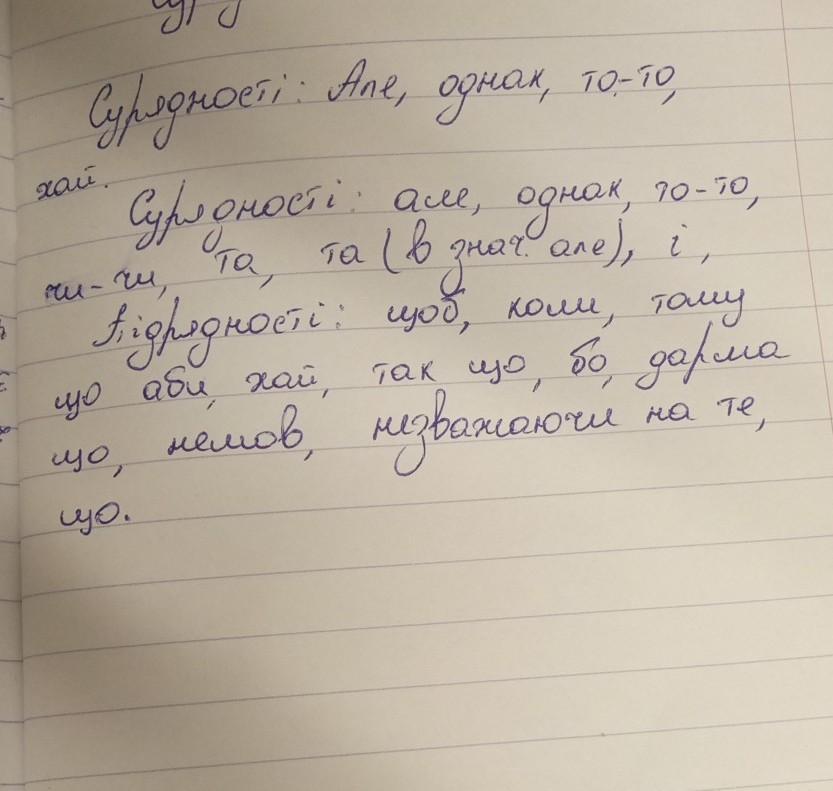 Сурядності: Але, однак, то-то,
хай.
Сурядності: але, однак, то-то,
чи-чи, та, та (в знач. але), і,
Підрядності: щоб, коли, тому
що аби, хай, так що, бо, дарма
що, немов, незважаючи на те,
що.